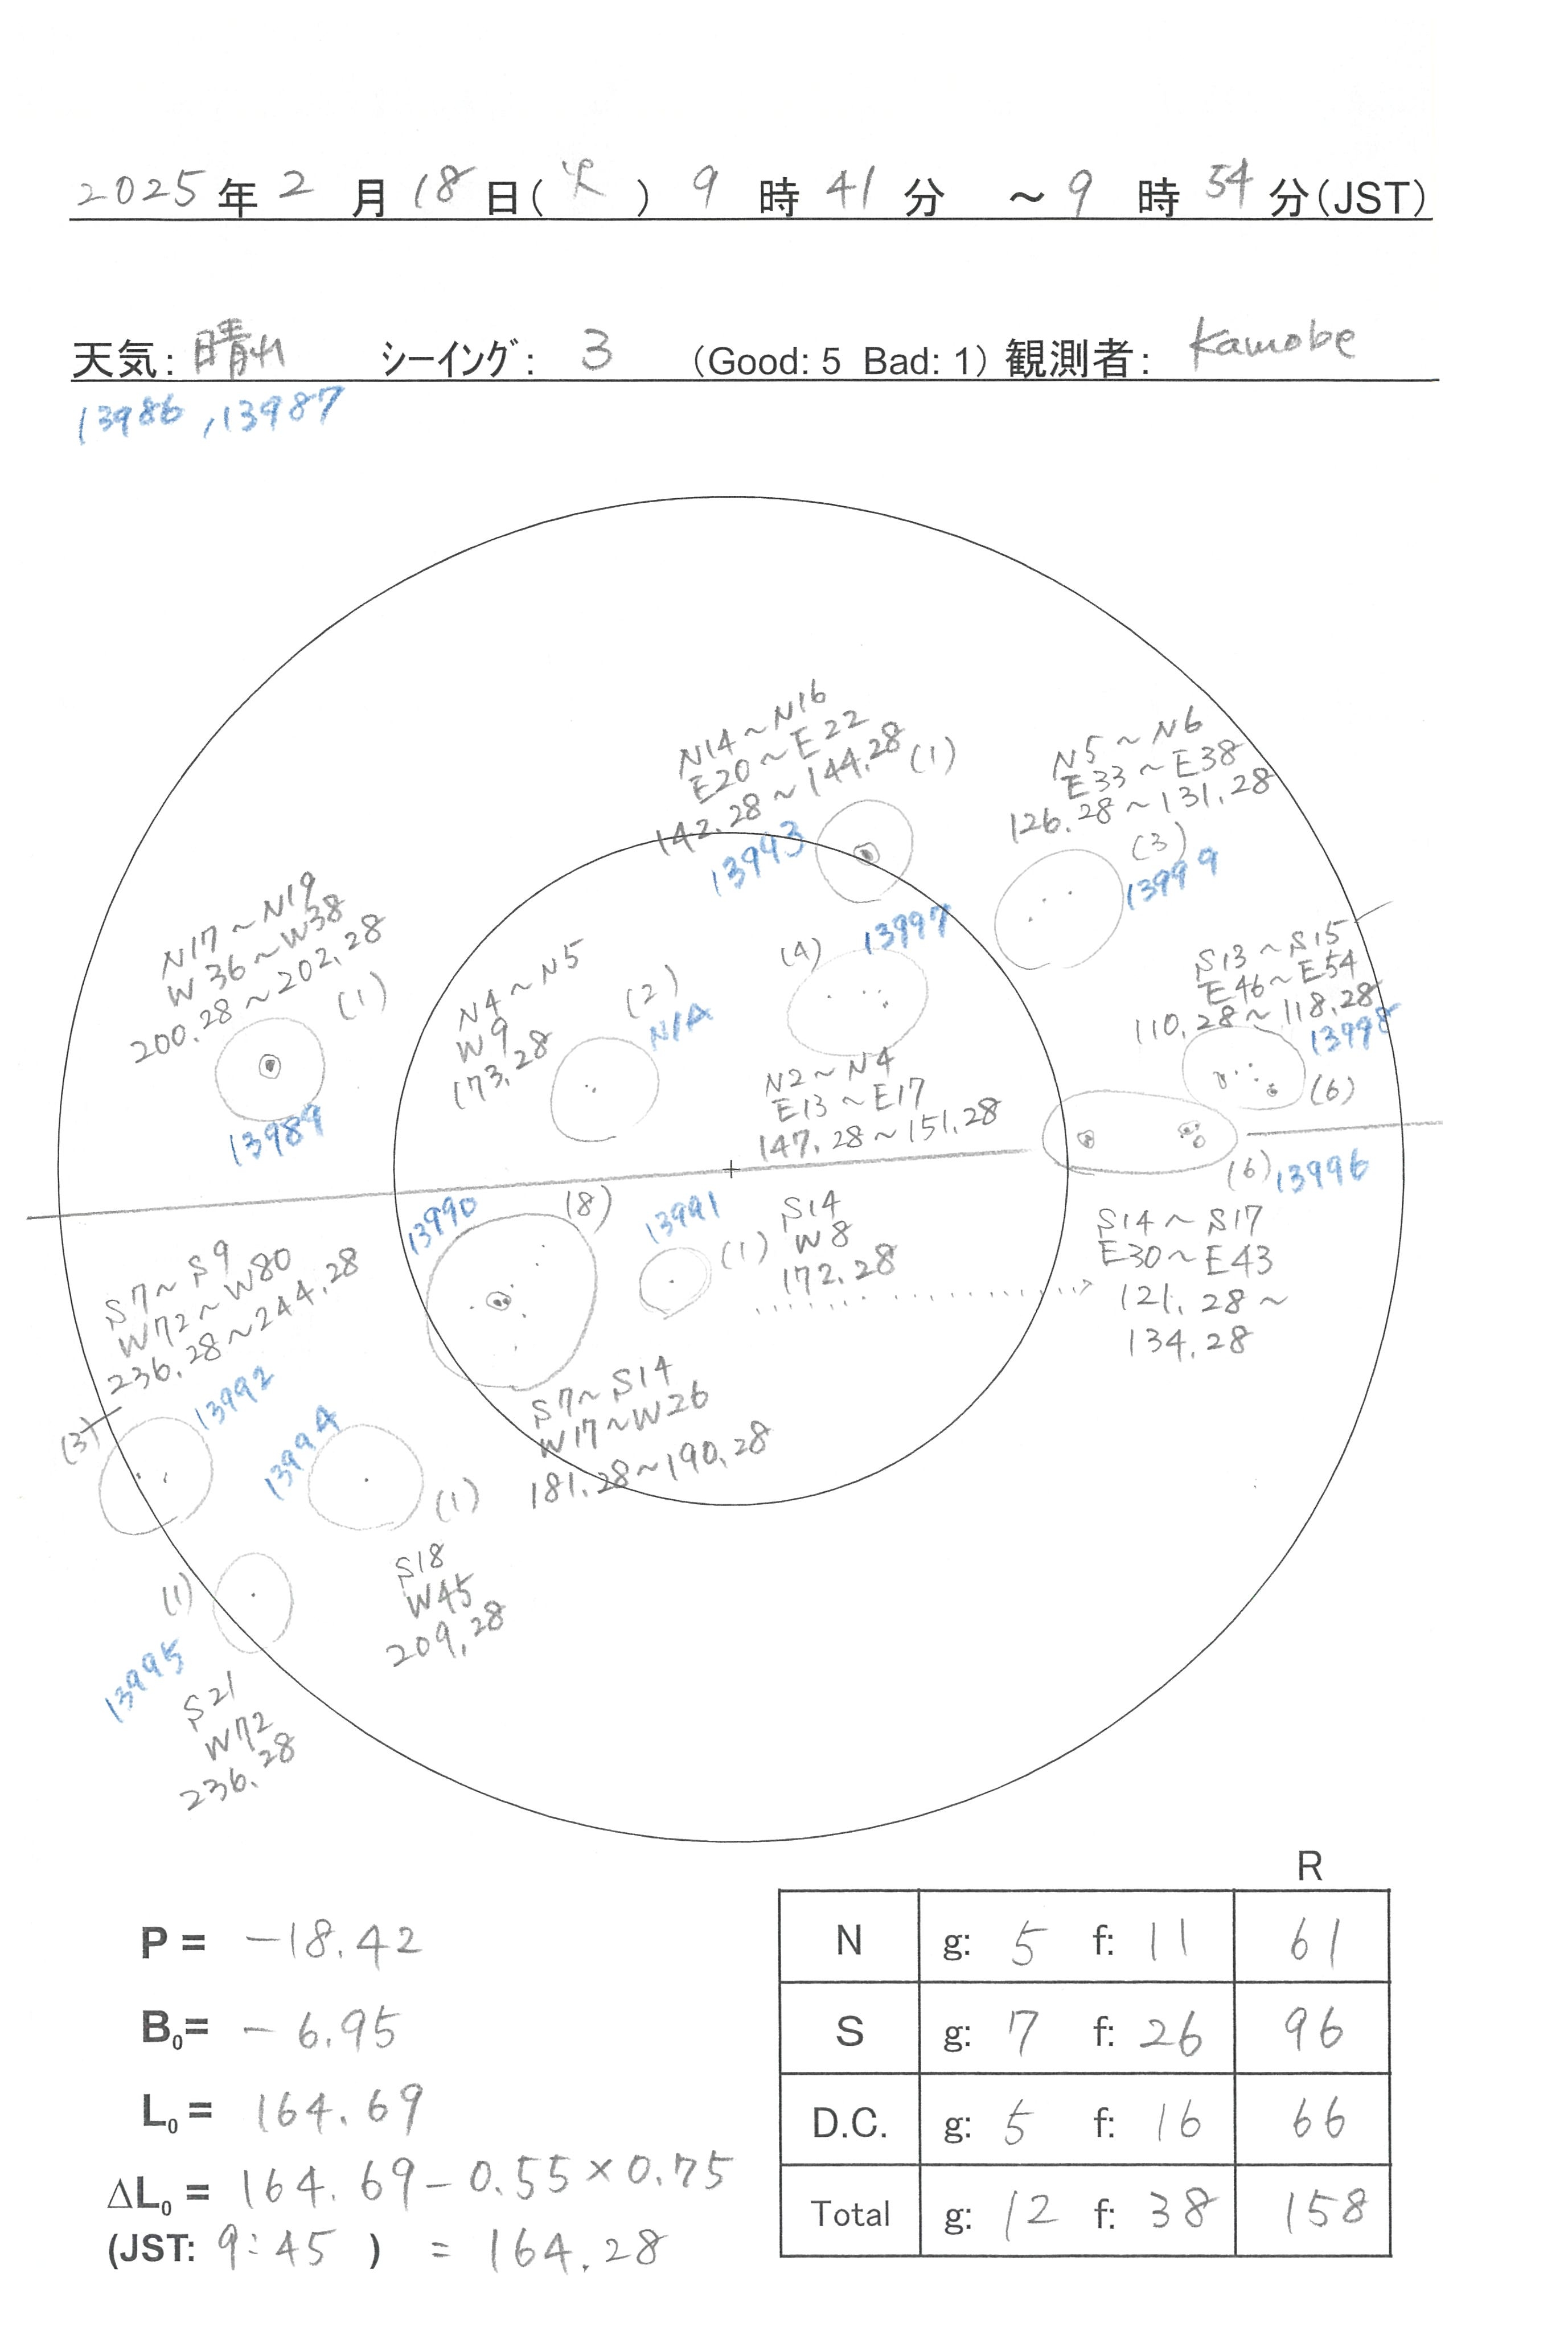 2025年2月18日(火)9時41分 ～9時54分(JST)
天気: 晴れ ｼｰｲﾝｸﾞ: 3 (Good: 5 Bad: 1) 観測者: Kamobe
13986, 13987
N14~N16
E20~E22
142.28~144.28
(1)
13993
N5~N6
E33~E38
126.28~131.28
(3)
13999
N17~N19
W36~W38
200.28~202.28
(1)
13989
N4~N5
W9
173.28
(2)
N/A
(4)
13997
N2~N4
E13~E17
147.28~151.28
S13~S15
E46~E54
110.28~118.28
13998
(6)
(6)
13996
S14~S17
E30~E43
121.28~
134.28
13990
(8)
13991
(1)
S14
W8
172.28
S7~S9
W72~W80
236.28~244.28
13992
(3)
S7~S14
W17~W26
181.28~190.28
13994
(1)
S18
W45
209.28
(1)
13995
S21
W72
236.28
R
P = -18.42
B0= -6.95
L0 = 164.69
ΔL0 = 164.69-0.55×0.75
(JST: 9:45 ) = 164.28
N g: 5 f: 11 61
S g: 7 f: 26 96
D.C. g: 5 f: 16 66
Total g: 12 f: 38 158